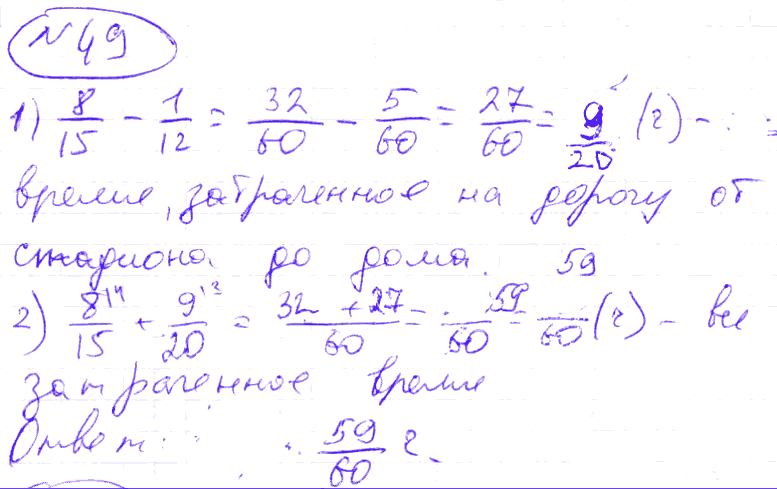 №49
1) 8/15 - 1/12 = 32/60 - 5/60 = 27/60 = 9/20 (ч) -
время, затраченное на дорогу от
стадиона до дома.
2) 8/15 + 9/20 = 32 + 27/60 = 59/60 = 59/60 (ч) - все
затраченное время
Ответ: 59/60 ч.